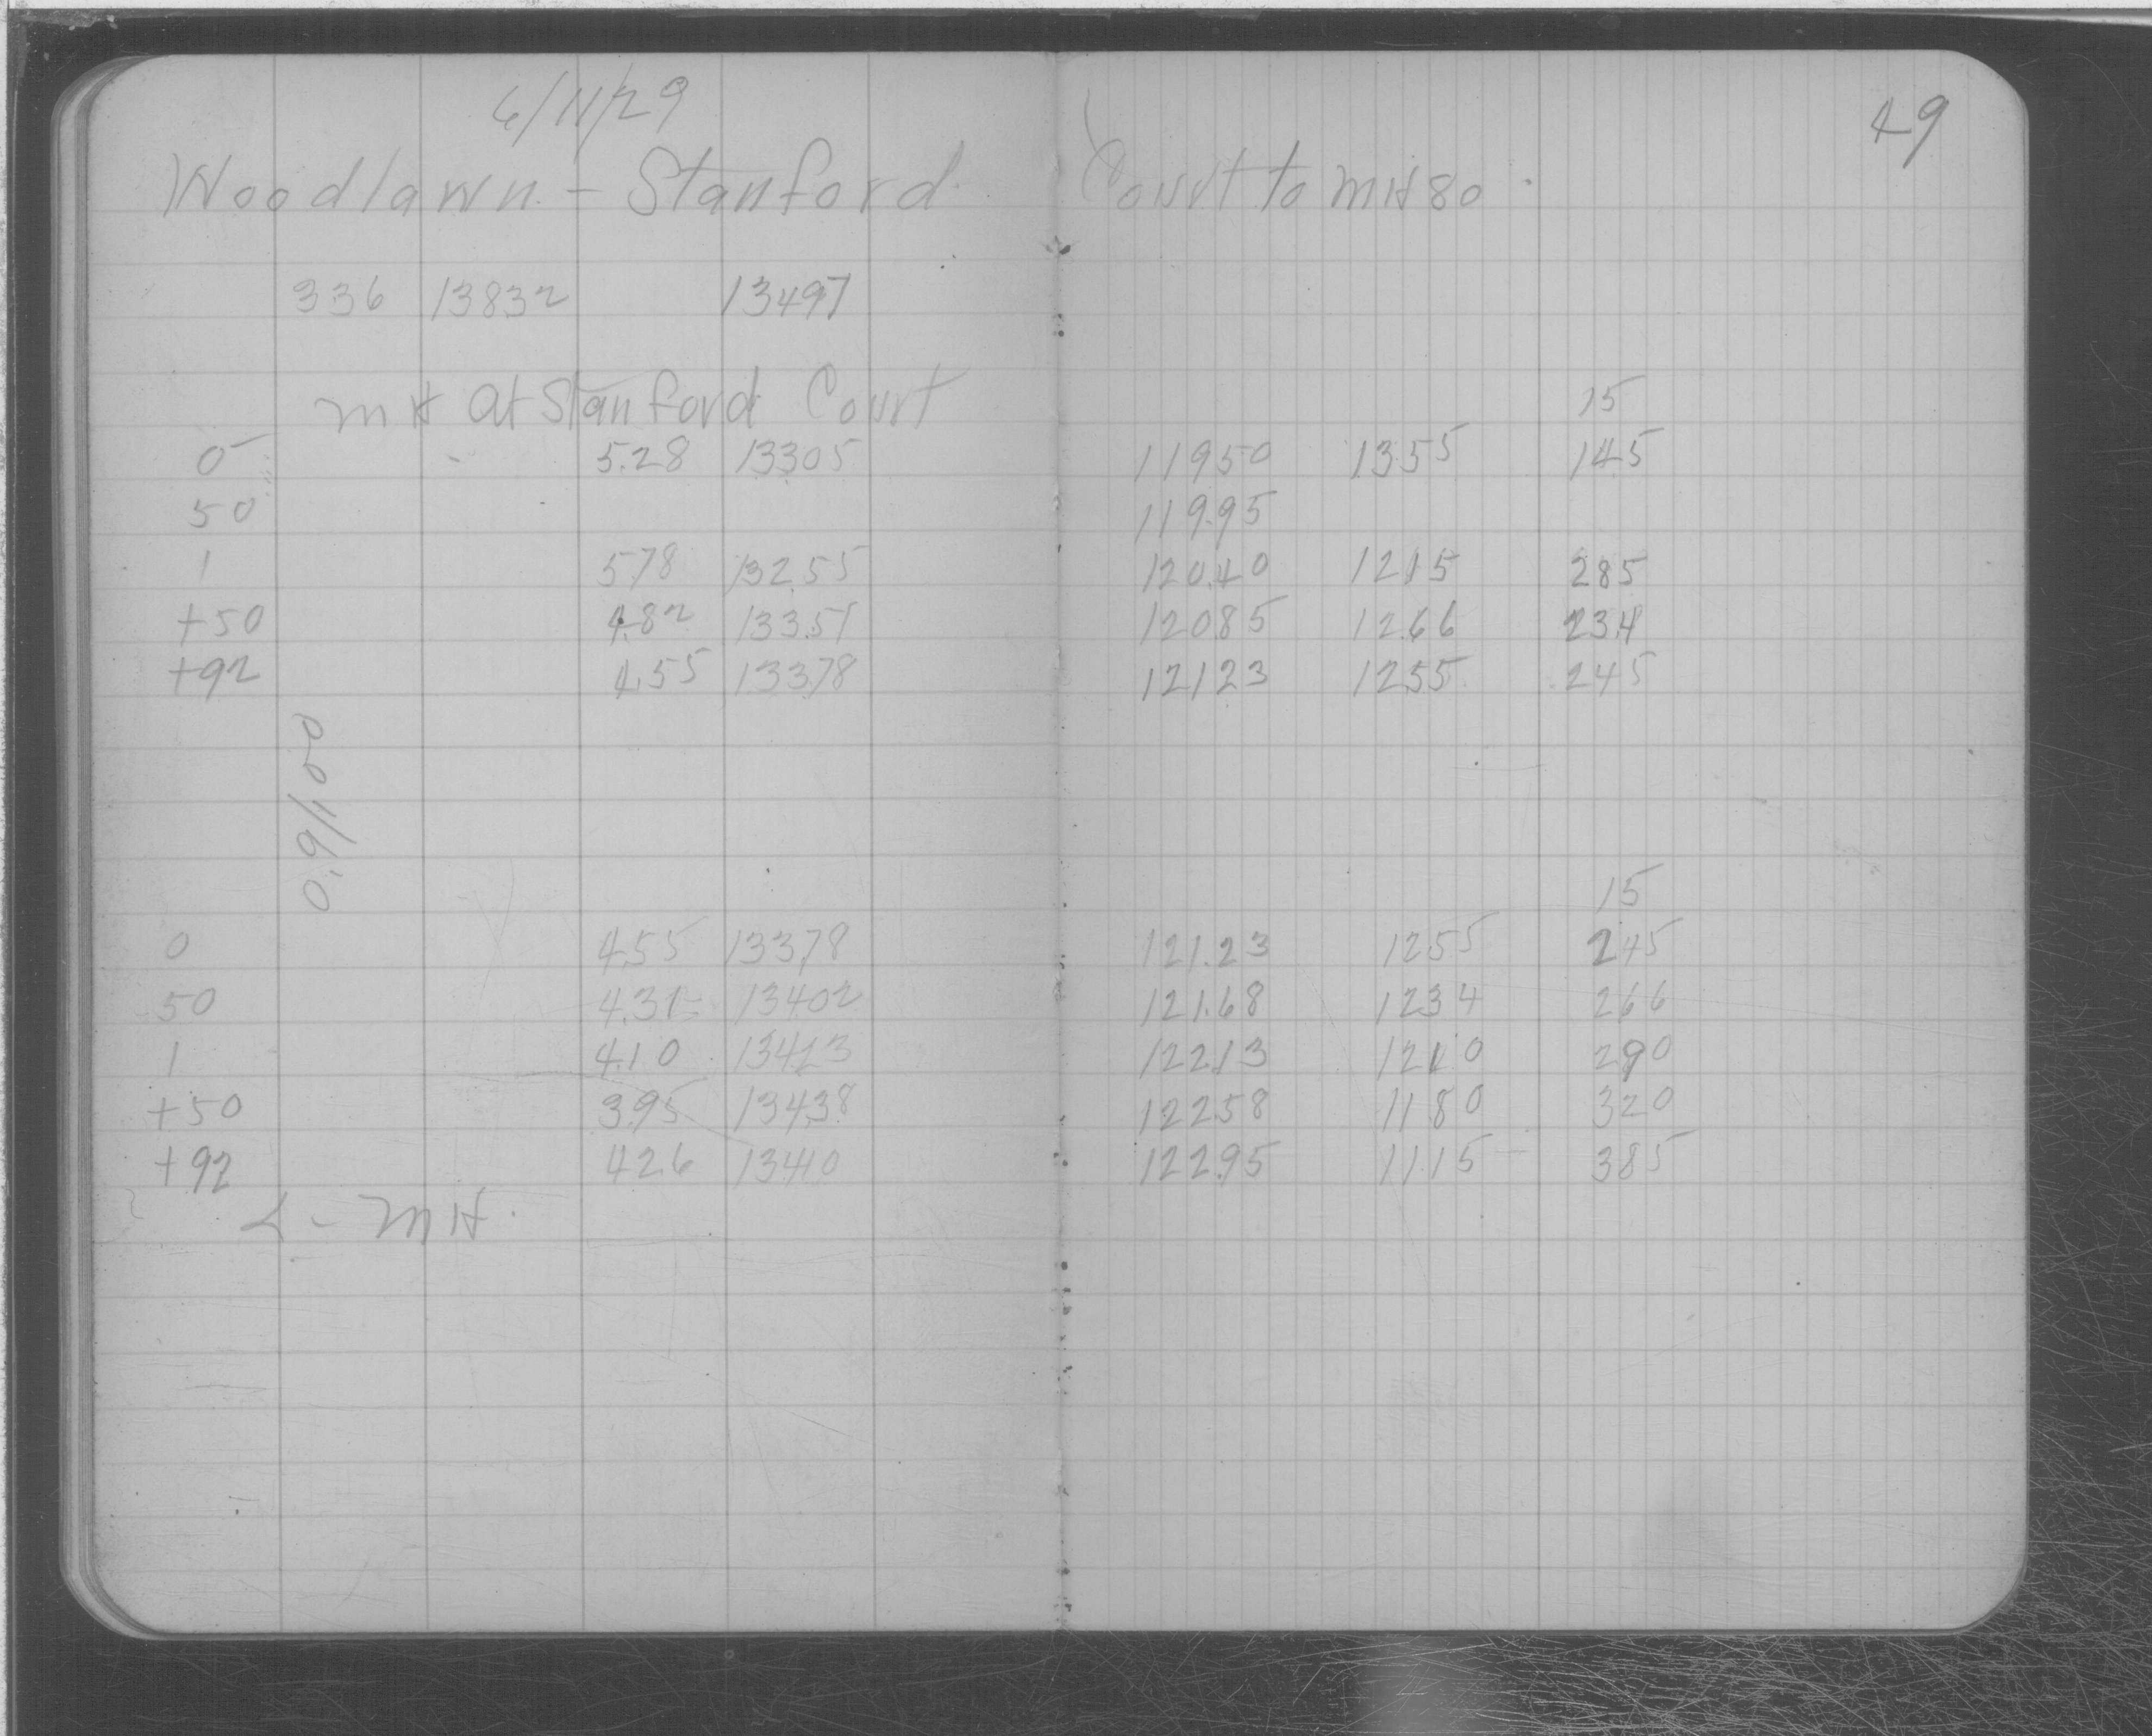 6/11/29
49
Woodlawn - Stanford Court to MH 80.
336 13832 13497
MH at Stanford Court
15
0 5.28 13305 11950 1355 145
50 119.95
1 578 132.55 120.40 1215 285
+50 4.82 133.51 12085 1266 234
+92 4.55 13378 12123 1255 245
0.9/100
15
0 455 13378 121.23 1255 245
50 4.31 13402 121.68 1234 266
1 4.10 13423 12213 1210 290
+50 395 13438 12258 1180 320
+92 426 13410 122.95 1115 385
L - MH.